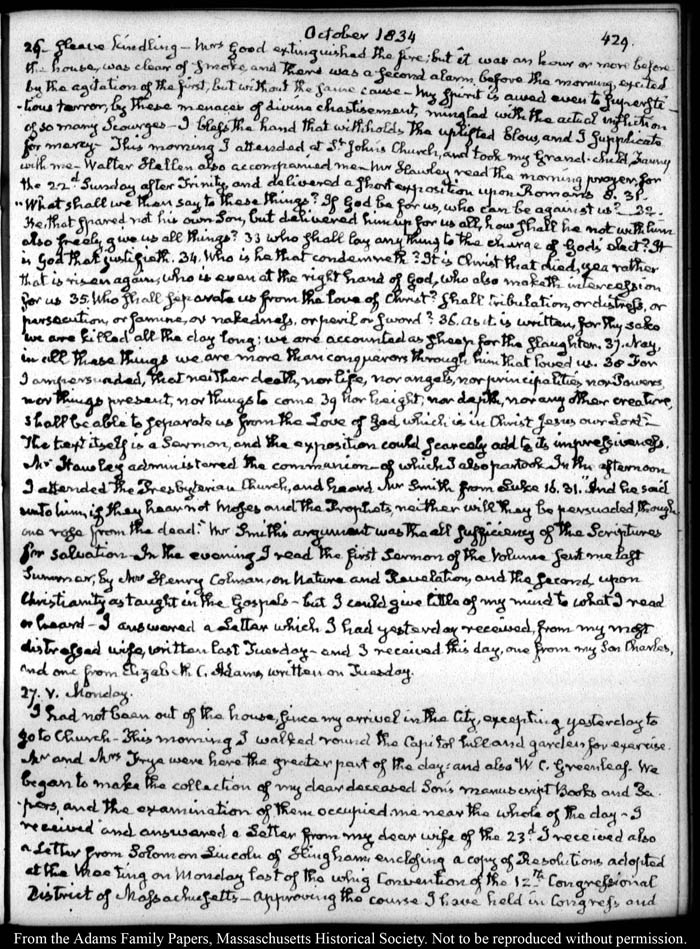 October 1834
429.
26. heave kindling — Mrs Good extinguished the fire; but it was an hour or more before
the house, was clear of smoke, and there was a second alarm, before the morning, excited
by the agitation of the first, but without the same cause — My spirit is awed even to supersti-
-tious terror, by these menaces of divine chastisement, mingled with the actual infliction
of so many scourges — I bless the hand that withholds the uplifted blow, and I supplicate
for mercy — This morning I attended at St John's Church, and took my Grand-child, Fanny
with me — Walter Hellen also accompanied me — Mr Hawley read the morning prayer, for
the 22d Sunday after Trinity, and delivered a short exposition upon Romans 8. 31.
"What shall we then say to these things? If God be for us, who can be against us? 32.
He that spared not his own Son, but delivered him up for us all, how shall he not with him
also freely give us all things? 33 who shall lay any thing to the charge of God's elect? It
is God that justifieth. 34. Who is he that condemneth? It is Christ that died, yea rather
that is risen again, who is even at the right hand of God, who also maketh intercession
for us 35. Who shall separate us from the love of Christ? shall tribulation, or distress, or
persecution, or famine, or nakedness, or peril or sword? 36. As it is written, for thy sake
we are killed all the day long: we are accounted as sheep for the slaughter. 37. Nay,
in all these things we are more than conquerors through him that loved us. 38 For
I am persuaded, that neither death, nor life, nor angels, nor principalities, nor Powers,
nor things present, nor things to come 39 Nor height, nor depth, nor any other creature,
shall be able to separate us from the Love of God, which is in Christ Jesus our Lord" —
The text itself is a Sermon, and the exposition could scarcely add to its impressiveness.
Mr Hawley administered the communion — of which I also partook. In the afternoon
I attended the Presbyterian Church, and heard Mr Smith from Luke 16. 31. "And he said
unto him, if they hear not Moses and the Prophets, neither will they be persuaded though
one rose from the dead." Mr Smith's argument was the all sufficiency of the Scriptures
for salvation — In the evening I read the first Sermon of the Volume sent me last
Summer, by Mrs Henry Colman, on Nature and Revelation, and the second upon
Christianity as taught in the Gospels — but I could give little of my mind to what I read
or heard — I answered a Letter which I had yesterday received, from my most
distressed wife, written last Tuesday — and I received this day, one from my Son Charles,
and one from Elizabeth C. Adams, written on Tuesday.
27. V. Monday.
I had not been out of the house, since my arrival in the City, excepting yesterday to
go to Church — This morning I walked round the Capitol hill and garden for exercise.
Mr and Mrs Frye were here the greater part of the day; and also W. C. Greenleaf. We
began to make the collection of my dear deceased Son's manuscript Books and Pa-
-pers, and the examination of them occupied me near the whole of the day — I
received and answered a Letter from my dear wife of the 23d. I received also
a Letter from Solomon Lincoln of Hingham, enclosing a copy of Resolutions adopted
at the Meeting on Monday last of the whig Convention of the 12th Congressional
District of Massachusetts — approving the course I have held in Congress, and
From the Adams Family Papers, Massachusetts Historical Society. Not to be reproduced without permission.